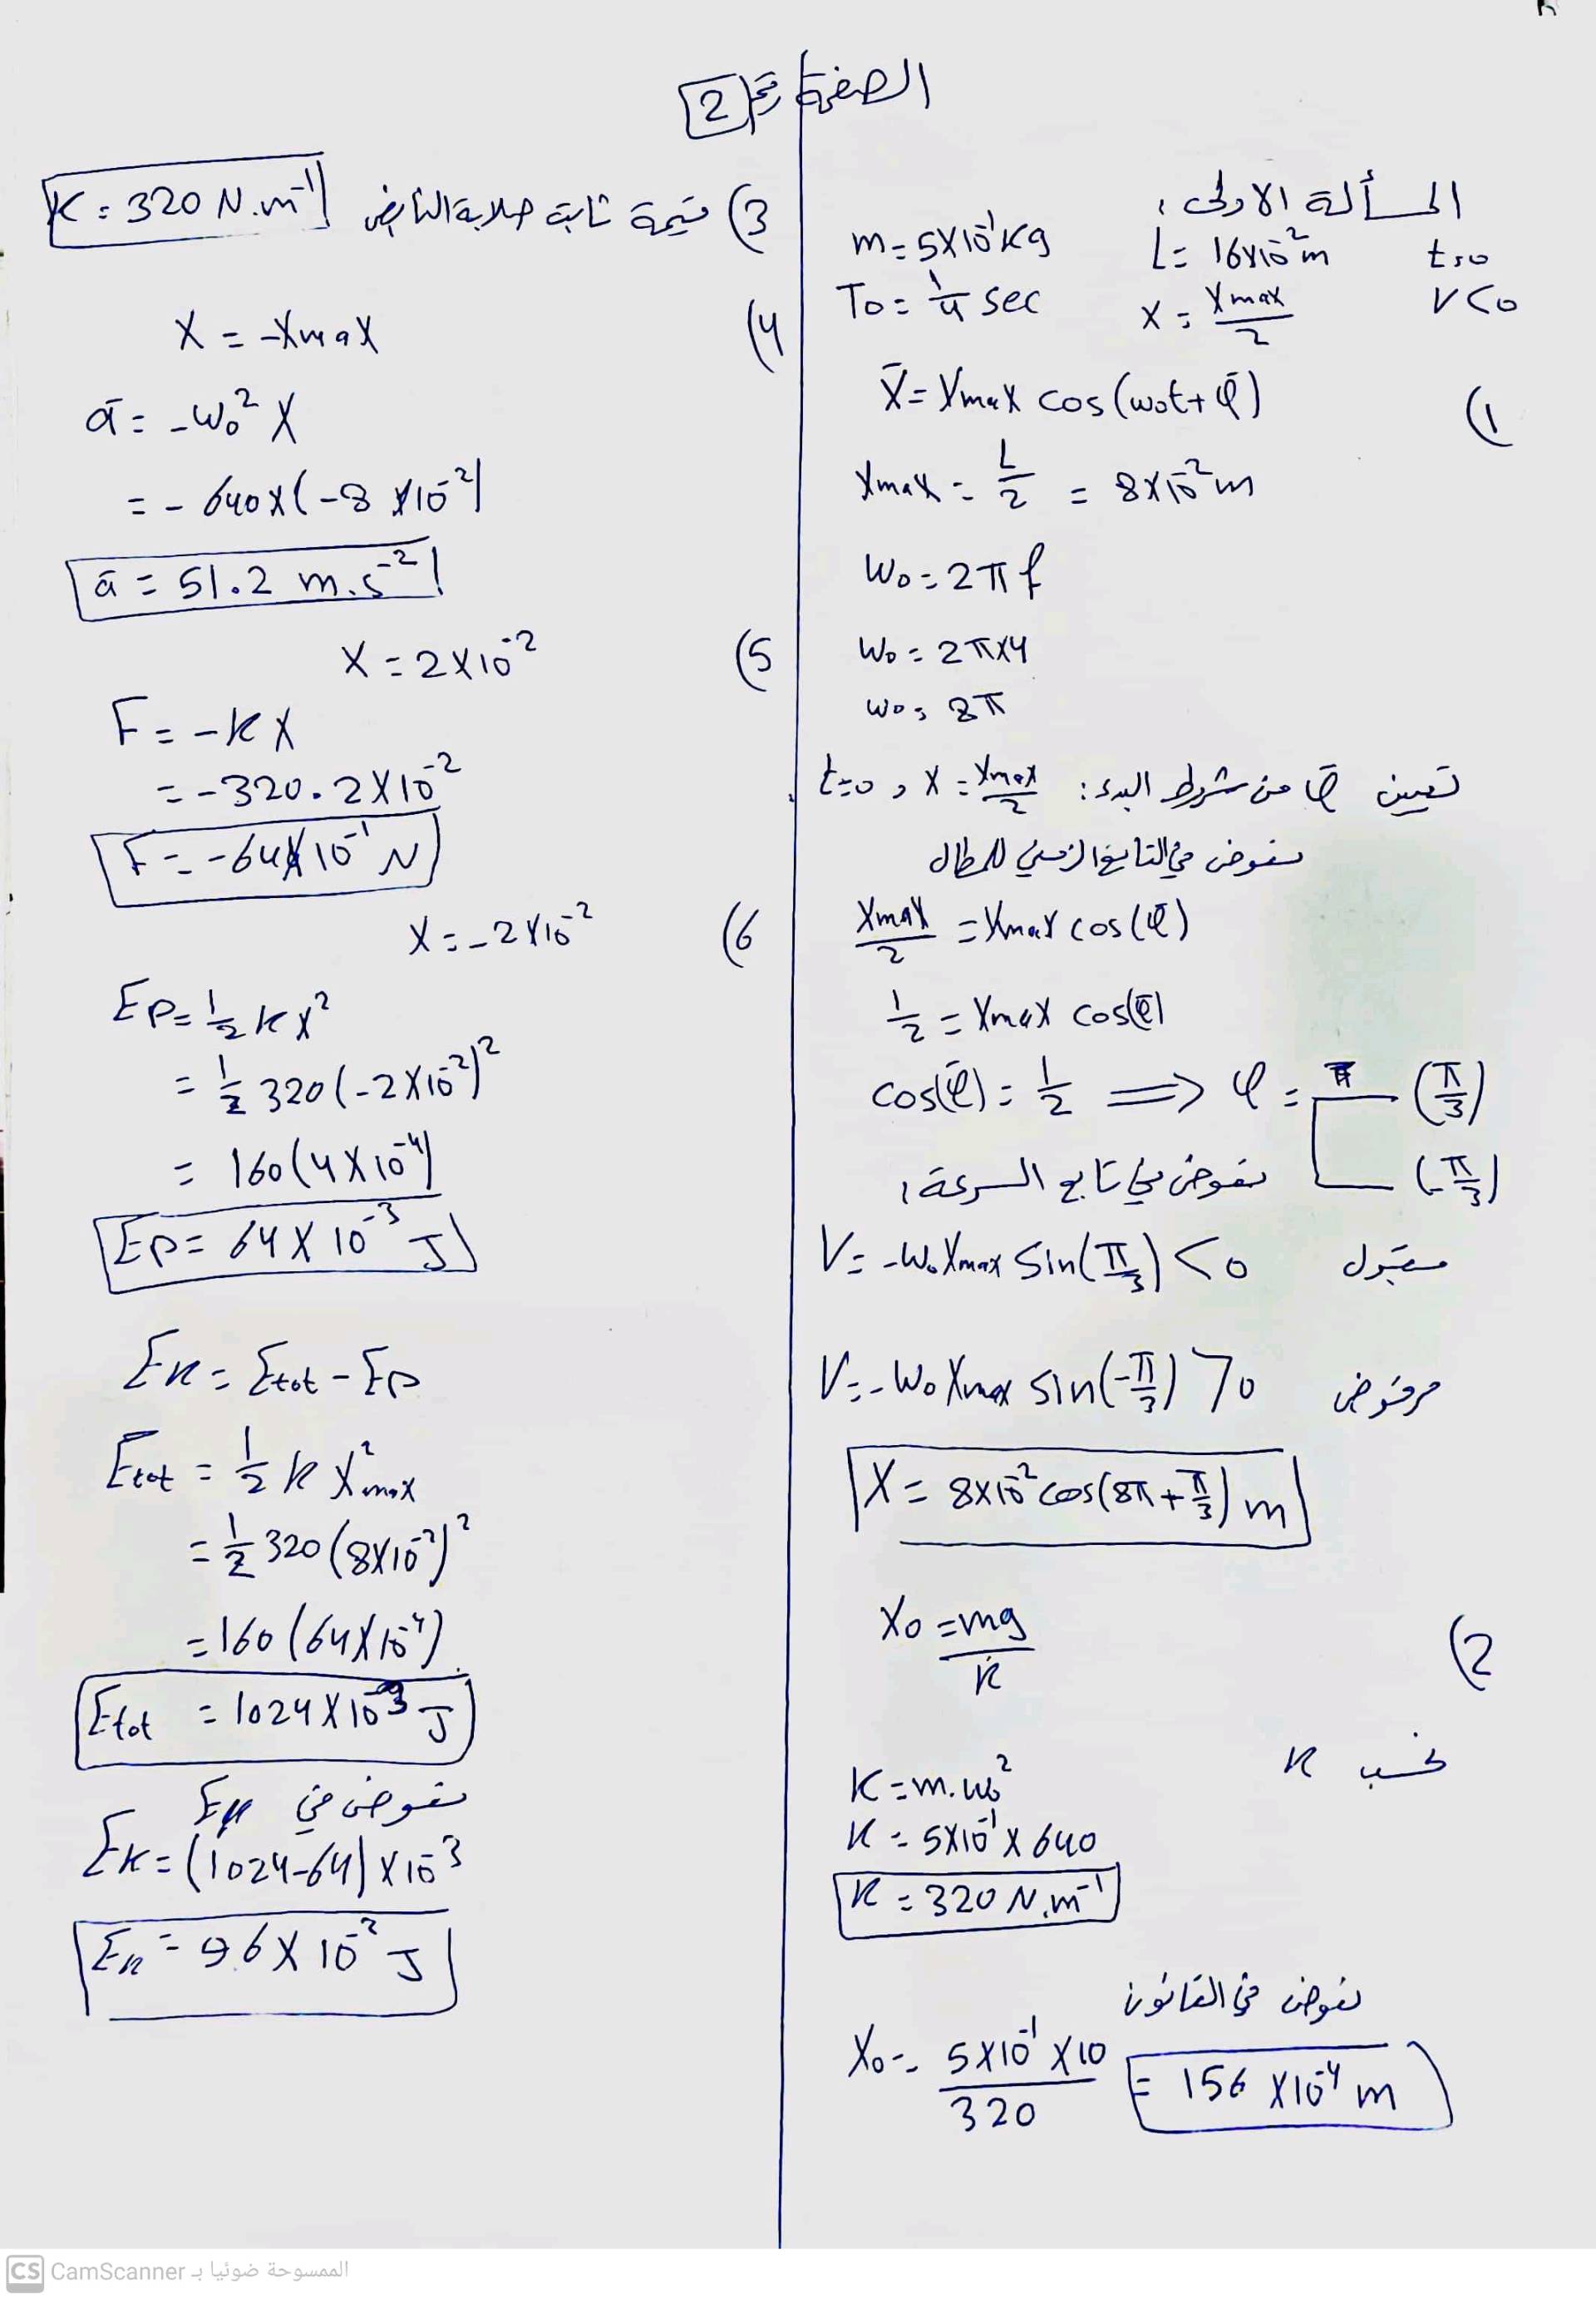 الصفحة رقم 2
المسألة الاولى :
m = 5×10⁻¹ kg L = 16×10⁻² m t=0
To = 1/4 sec X = Xmax/2 V<0
1) X̄ = Xmax cos(ω₀t+φ̄)
Xmax = L/2 = 8×10⁻² m
ω₀ = 2πf
ω₀ = 2π×4
ω₀ = 8π
تعيين φ̄ من شروط البدء : t=0 , X = Xmax/2
نعوض في التابع الزمني للمطال
Xmax/2 = Xmax cos(φ̄)
1/2 = Xmax cos(φ̄)
cos(φ̄) = 1/2 ⟹ φ = (π/3)
(-π/3)
نعوض في تابع السرعة :
V = -ω₀Xmax Sin(π/3) <0 مقبول
V = -ω₀Xmax sin(-π/3) >0 مرفوض
X = 8×10⁻² cos(8π+π/3) m
2) X₀ = mg/k
نحسب K
K = m.ω₀²
K = 5×10⁻¹ × 640
K = 320 N.m⁻¹
نعوض في القانون
X₀ = 5×10⁻¹ ×10/320 = 156 ×10⁻⁴ m
3) قيمة ثابتة صلابة النابض K = 320 N.m⁻¹
4) X = -Xmax
ā = -ω₀² X
= - 640×(-8 ×10⁻²)
ā = 51.2 m.s⁻²
5) X = 2×10⁻²
F = -k X
= -320.2×10⁻²
F = -64×10⁻¹ N
6) X = -2×10⁻²
Ep = 1/2 k X²
= 1/2 320(-2×10⁻²)²
= 160(4×10⁻⁴)
Ep = 64×10⁻³ J
Ek = Etot - Ep
Etot = 1/2 k X²max
= 1/2 320(8×10⁻²)²
= 160(64×10⁻⁴)
Etot = 1024×10⁻³ J
نعوض في Ek
Ek = (1024-64)×10⁻³
Ek = 96×10⁻² J
CS CamScanner الممسوحة ضوئيا بـ